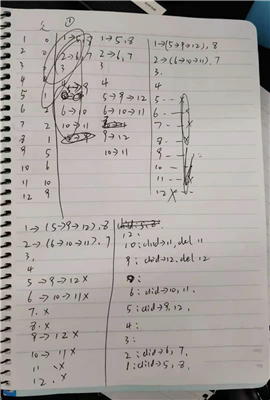 ①
1 0
2 0
3
4
5 1
6 2
7 2
8 1
9 5
10 6
11 10
12 9
1→5,8
2→6,7
3
4
6→10
10→11
1→5,8
2→6,7
3
4
5→9→12
6→10→11
10→11
1→(5→9→12),8
2→(6→10→11),7
3.
4
5-
6-
7-
8-
9-
10-
11-
12
1→(5→9→12),8
2→(6→10→11),7
3.
4
5→9→12 X
6→10→11 X
7. X
8. X
9→12 X
10→11 X
11 X
12. X
12:
10: clild→11, del 11
9: clild→12, del 12
6: clild→10, 11
5: clild→9, 12
4:
3:
2: clild→6, 7
1: clild→5, 8